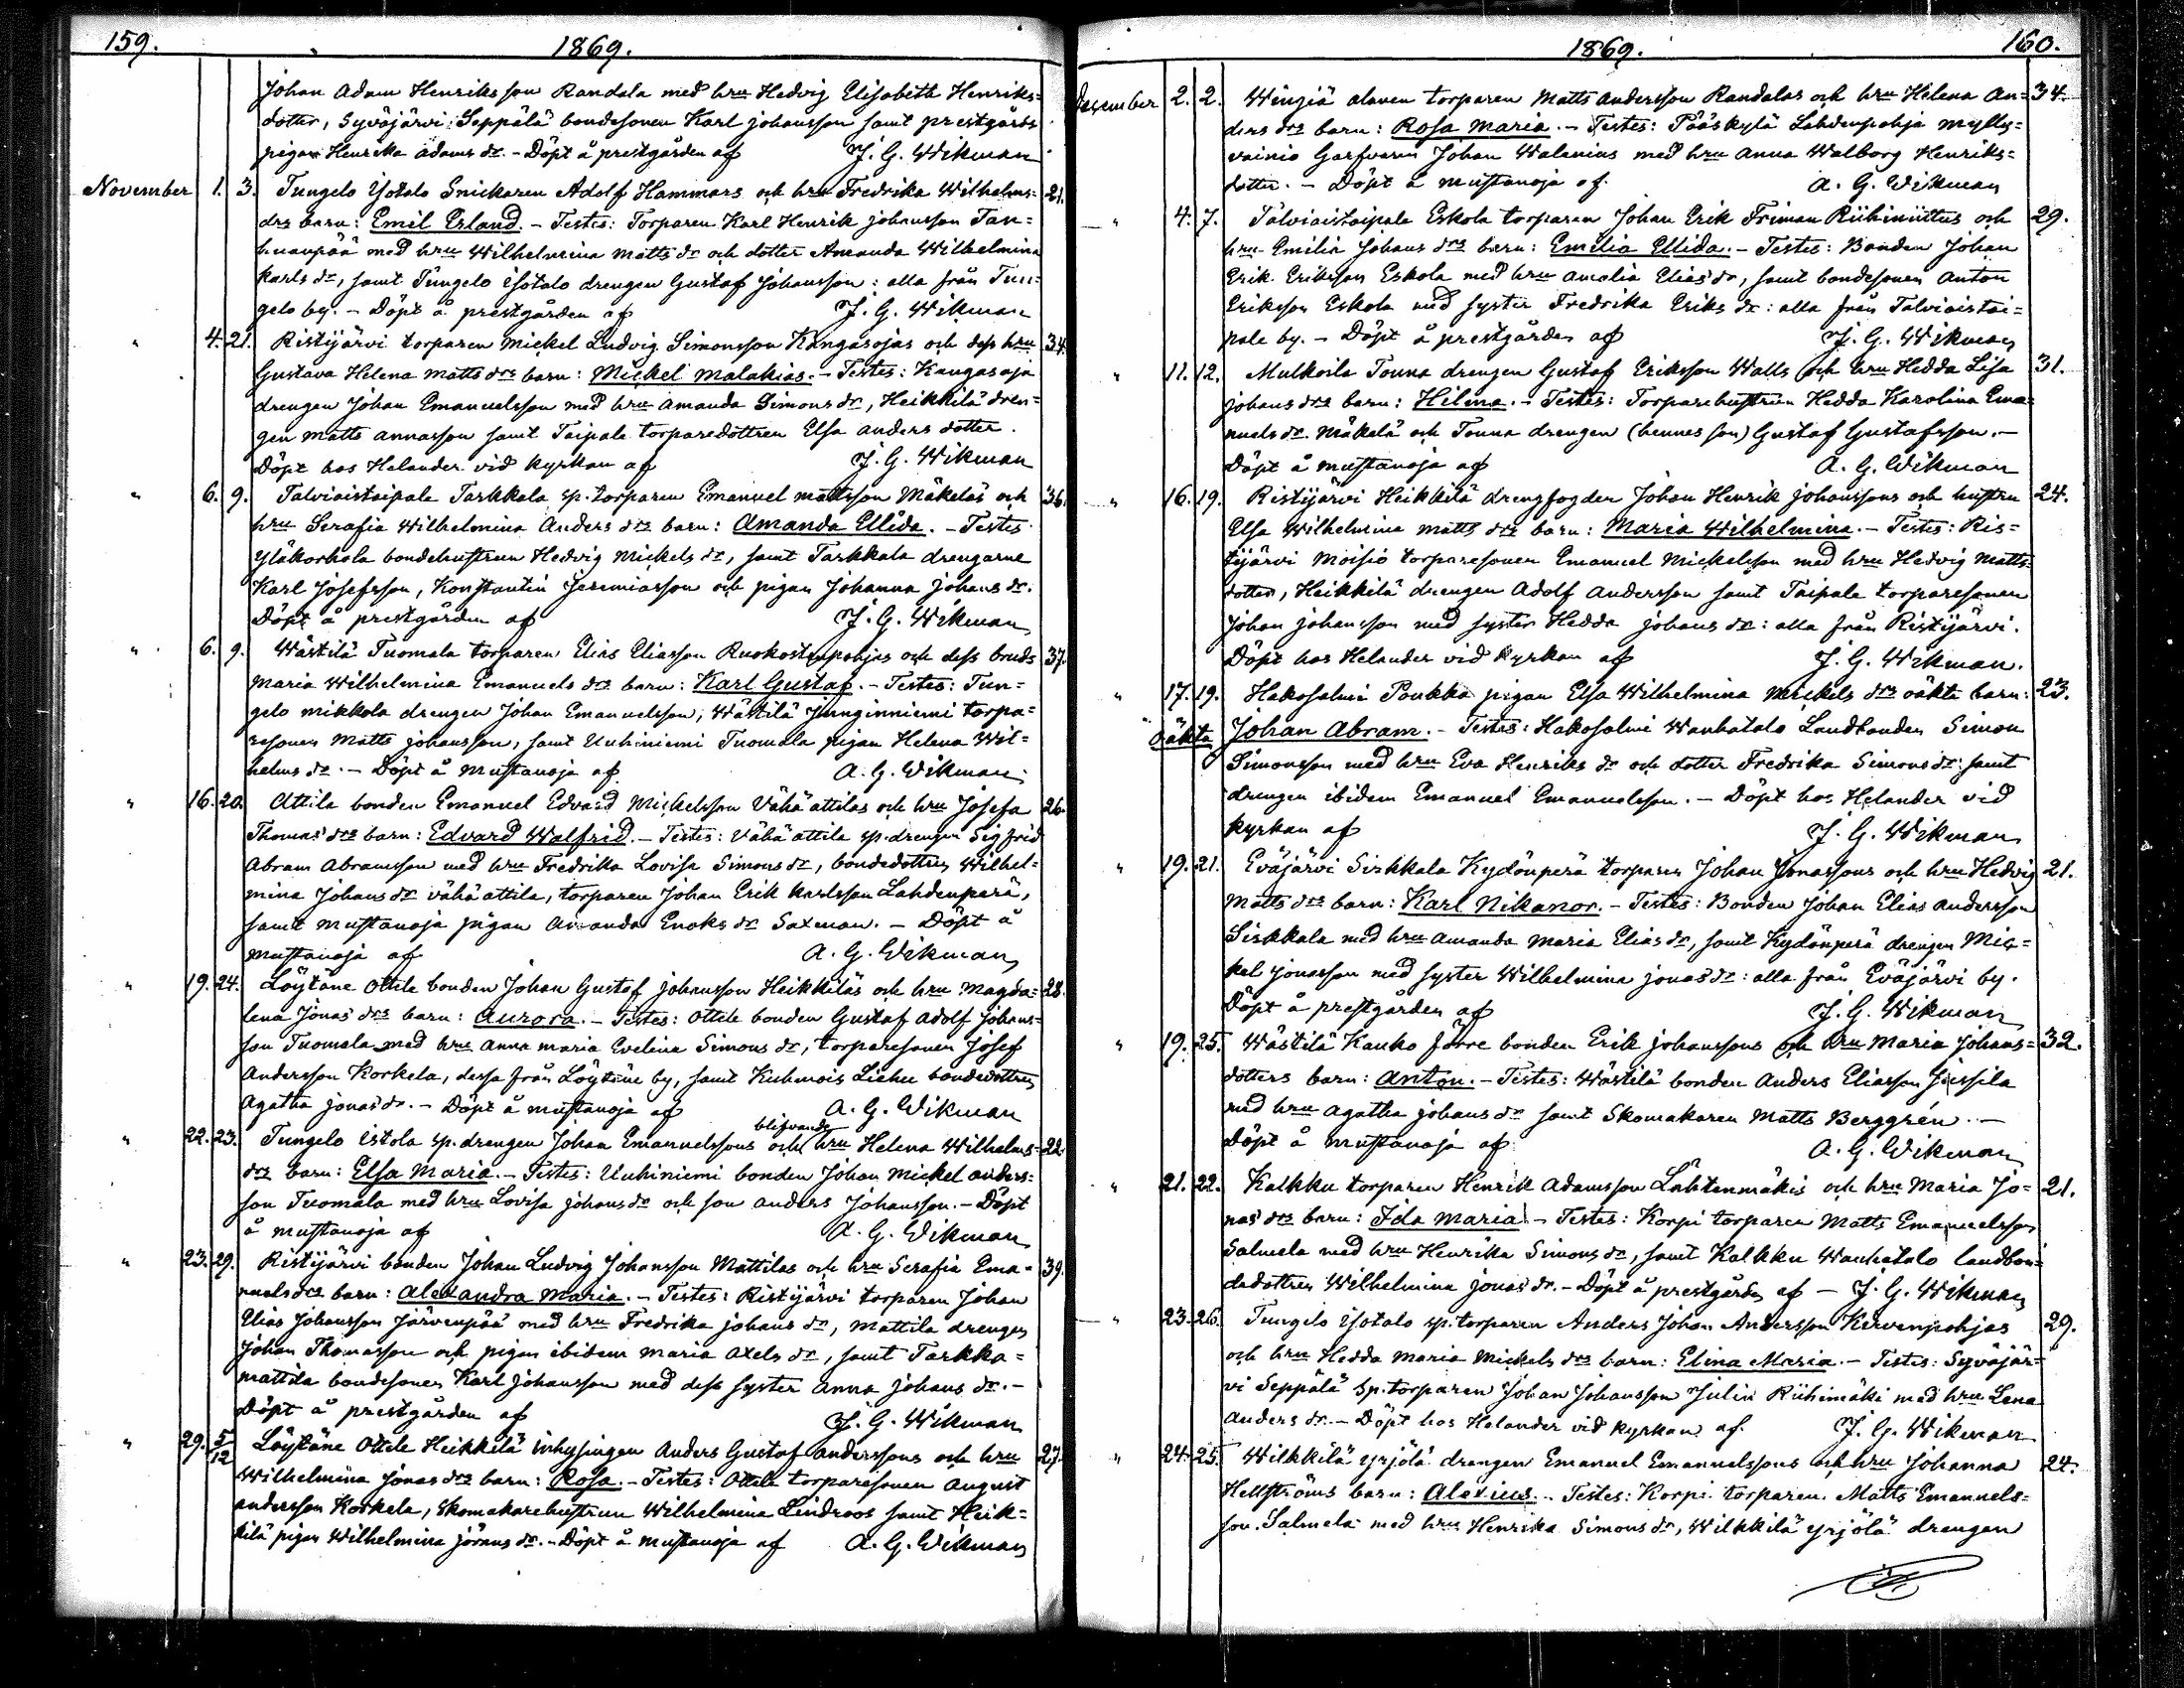 159.
1869.
Johan Adam Henriksson Randala med hru Hedvig Elisabeth Henriks=
dotter, Syväjärvi Seppälä bondesonen Karl Johansson samt prestgårds
pigan Henrika Adams dr. - Döpt å prestgården af J. G. Wikman
November 1. 3. Tungelo Isotalo Snickaren Adolf Hammars och hru Fredrika Wilhelms= 21.
drs barn: Emil Erland. - Testes: Torparen Karl Henrik Johansson Tan=
huanpää med hru Wilhelmina Matts dr och dotter Amanda Wilhelmina
Karls dr, samt Tungelo Isotalo drengen Gustaf Johansson: alla från Tun=
gelo by. - Döpt å prestgården af J. G. Wikman
" 4. 21. Ristijärvi torparen Mickel Ludvig Simonsson Kangasojas och dess hru 34.
Gustava Helena Matts drs barn: Mickel Malakias. - Testes: Kangasoja
drengen Johan Emanuelsson med hru Amanda Simons dr, Heikkilä dren=
gen Matts Annasson samt Taipale torparedottren Elsa Anders dotter.
Döpt hos Helander vid kyrkan af J. G. Wikman
" 6. 9. Talviaistaipale Tarkkala sp. torparen Emanuel Mattsson Mäkeläs och 36.
hru Serafia Wilhelmina Anders drs barn: Amanda Ellida. - Testes:
Yläkorkola bondehustrun Hedvig Mickels dr, samt Tarkkala drengarne
Karl Josefsson, Konstantin Jeremiasson och pigan Johanna Johans dr.
Döpt å prestgården af J. G. Wikman
" 6. 9. Wästilä Tuomala torparen Elias Eliasson Ruokostenpohjas och dess bruds 37.
Maria Wilhelmina Emanuels drs barn: Karl Gustaf. - Testes: Tun=
gelo Mikkola drengen Johan Emanuelsson, Wästilä Junginniemi torpa=
resonen Matts Johansson, samt Uuhiniemi Tuomala pigan Helena Wil=
helms dr. - Döpt å Mustanoja af A. G. Wikman
" 16. 20. Attila bonden Emanuel Edvard Mickelsson Vähäattilas och hru Josefa 26.
Thomas drs barn: Edvard Walfrid. - Testes: Vähäattila sp. drengen Sigfrid
Abram Abramsson med hru Fredrika Lovisa Simons dr, bondedottren Wilhel=
mina Johans dr Vähäattila, torparen Johan Erik Karlsson Lahdenperä,
samt Mustanoja pigan Amanda Enoks dr Saxman. - Döpt å
Mustanoja af A. G. Wikman
" 19. 24. Löytäne Ottile bonden Johan Gustaf Johansson Heikkiläs och hru Magda= 28.
lena Jonas drs barn: Aurora. - Testes: Ottile bonden Gustaf Adolf Johans=
son Tuomala med hru Anna Maria Evelina Simons dr, torparesonen Josef
Andersson Korkela, dessa från Löytäne by, samt Kuhmois Liehu bondedottren
Agatha Jonas dr. - Döpt å Mustanoja af A. G. Wikman
blifvande
" 22. 23. Tungelo Istola sp. drengen Johan Emanuelssons och hru Helena Wilhelms= 22.
drs barn: Elsa Maria. - Testes: Uuhiniemi bonden Johan Mickel Anders=
son Tuomala med hru Lovisa Johans dr och son Anders Johansson. - Döpt
å Mustanoja af A. G. Wikman
" 23. 29. Ristijärvi bonden Johan Ludvig Johansson Mattilas och hru Serafia Ema= 39.
nuels drs barn: Alexandra Maria. - Testes: Ristijärvi torparen Johan
Elias Johansson Järvenpää med hru Fredrika Johans dr, Mattila drengen
Johan Thomasson och pigan ibidem Maria Axels dr, samt Tarkka=
mattila bondesonen Karl Johansson med dess syster Anna Johans dr. -
Döpt å prestgården af J. G. Wikman
" 29. 5/12 Löytäne Ottile Heikkilä inhysingen Anders Gustaf Anderssons och hru 27.
Wilhelmina Jonas drs barn: Rosa. - Testes: Ottile torparesonen August
Andersson Korkela, Skomakarehustrun Wilhelmina Lindroos samt Heik=
kilä pigan Wilhelmina Jörans dr. - Döpt å Mustanoja af A. G. Wikman
1869.
160.
December 2. 2. Wingiä torparen Matts Andersson Randalas och hru Helena An= 34.
ders drs barn: Rosa Maria. - Testes: Pääskylä Lahdenpohja Mylly=
vainio Garfvaren Johan Walenius med hru Anna Walborg Henriks=
dotter. - Döpt å Mustanoja af A. G. Wikman
" 4. 7. Talviaistaipale Eskola torparen Johan Erik Friman Riihiniittus och 29.
hru Emilia Johans drs barn: Emilia Ellida. - Testes: Bonden Johan
Erik Eriksson Eskola med hru Amalia Elias dr, samt bondesonen Anton
Eriksson Eskola med syster Fredrika Eriks dr: alla från Talviaistai=
pale by. - Döpt å prestgården af J. G. Wikman
" 11. 12. Mulkoila Touna drengen Gustaf Eriksson Walls och hru Hedda Lisa 31.
Johans drs barn: Hilma. - Testes: Torparehustrun Hedda Karolina Ema=
nuels dr Mäkelä och Touna drengen (hennes son) Gustaf Gustafsson. -
Döpt å Mustanoja af A. G. Wikman
" 16. 19. Ristijärvi Heikkilä drengfogden Johan Henrik Johanssons och hustru 24.
Elsa Wilhelmina Matts drs barn: Maria Wilhelmina. - Testes: Ris=
tijärvi Moisio torparesonen Emanuel Mickelsson med hru Hedvig Matts
dotter, Heikkilä drengen Adolf Andersson samt Taipale torparesonen
Johan Johansson med syster Hedda Johans dr: alla från Ristijärvi.
Döpt hos Helander vid kyrkan af J. G. Wikman.
" 17. 19. Hakosalmi Poukka pigan Elsa Wilhelmina Mickels drs oäkta barn: 23.
Oäkta Johan Abram. - Testes: Hakosalmi Wanhatalo Landbonden Simon
Simonsson med hru Eva Henriks dr och dotter Fredrika Simons dr samt
drengen ibidem Emanuel Emanuelsson. - Döpt hos Helander vid
kyrkan af J. G. Wikman
" 19. 21. Eväjärvi Sirkkala Kydönperä torparen Johan Jonassons och hru Hedvig 21.
Matts drs barn: Karl Nikanor. - Testes: Bonden Johan Elias Andersson
Sirkkala med hru Amanda Maria Elias dr, samt Kydönperä drengen Mic=
kel Jonasson med syster Wilhelmina Jonas dr: alla från Eväjärvi by.
Döpt å prestgården af J. G. Wikman
" 19. 25. Wästilä Kauko förre bonden Erik Johanssons och hru Maria Johans= 32.
dotters barn: Anton. - Testes: Wästilä bonden Anders Eliasson Jussila
med hru Agatha Johans dr samt Skomakaren Matts Berggrén. -
Döpt å Mustanoja af A. G. Wikman
" 21. 22. Kalkku torparen Henrik Adamsson Lähtenmäkis och hru Maria Jo= 21.
nas drs barn: Ida Maria. - Testes: Korpi torparen Matts Emanuelsson
Salmela med hru Henrika Simons dr, samt Kalkku Wanhatalo landbon=
dedottren Wilhelmina Jonas dr. - Döpt å prestgården af - J. G. Wikman
" 23. 26. Tungelo Isotalo sp. torparen Anders Johan Andersson Kervenpohjas 29.
och hru Hedda Maria Mickels drs barn: Elina Maria. - Testes: Syväjär=
vi Seppälä Sp. torparen Johan Johansson Julin Riihimäki med hru Lena
Anders dr. - Döpt hos Helander vid kyrkan af J. G. Wikman
" 24. 25. Wilkkilä Yrjölä drengen Emanuel Emanuelssons och hru Johanna 24.
Hellströms barn: Alexius. - Testes: Korpi torparen Matts Emanuels=
son Salmela med hru Henrika Simons dr, Wilkkilä Yrjölä drengen